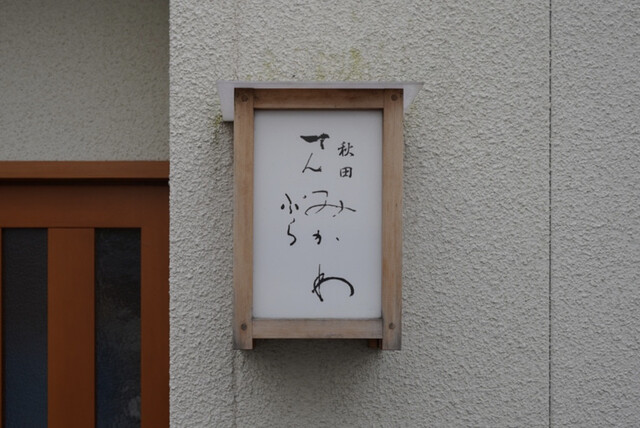 秋田
てん
みかわ
ぷら